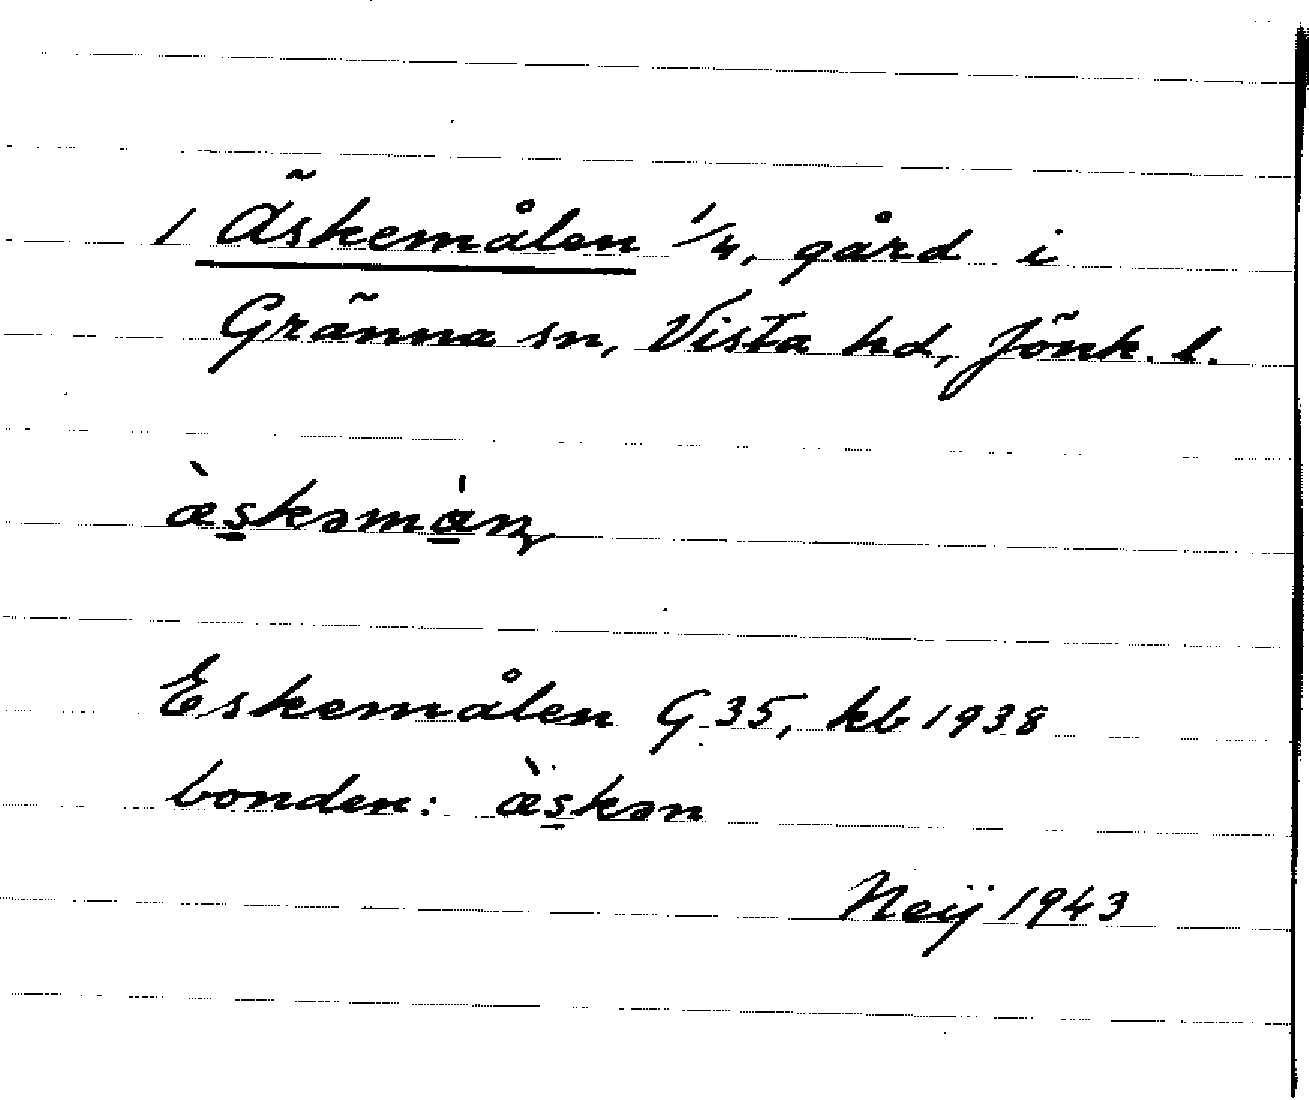 1 Äskemålen 1/4, gård i
Gränna sn, Vista hd, Jönk. l.
æ̀skəmàɳ
Eskemålen G 35, kb 1938
bonden: æ̀skən
Neij 1943